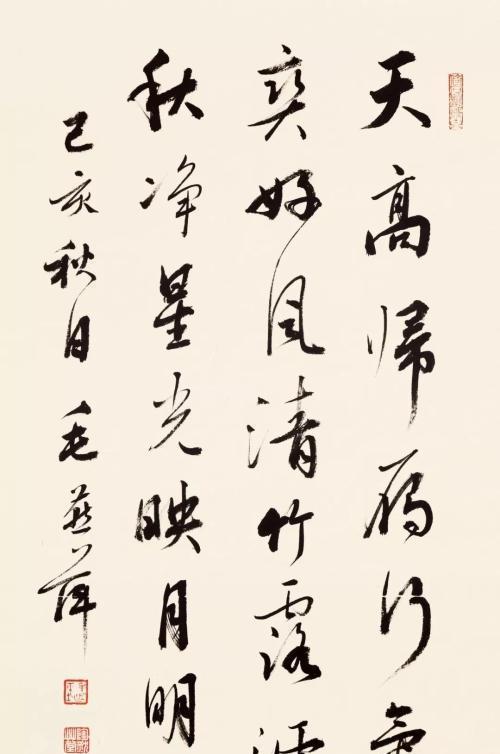 天高帰鴈行
爽好風清竹露
秋净星光映月明
己亥秋日毛燕萍